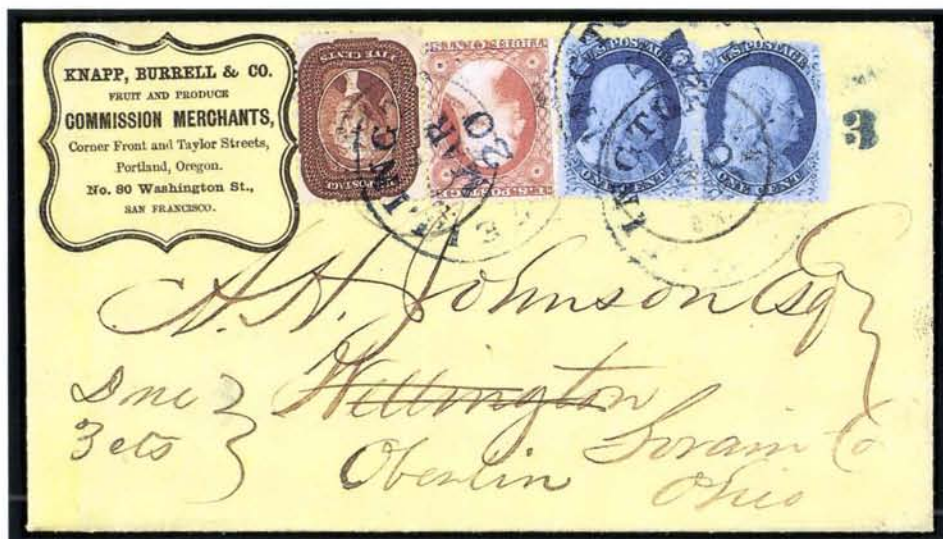 KNAPP, BURRELL & CO.
FRUIT AND PRODUCE
COMMISSION MERCHANTS,
Corner Front and Taylor Streets,
Portland, Oregon.
No. 80 Washington St.,
SAN FRANCISCO.
FIVE CENTS
U.S. POSTAGE
ONE CENT
U.S. POSTAGE
ONE CENT
MAR
20
3
Johnson Esq
Wellington
Due
3 cts
Oberlin Lorain Co
Ohio